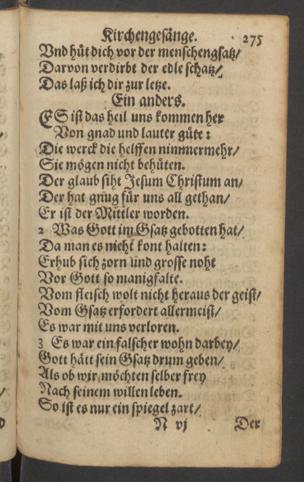 Kirchengesänge. 275
Vnd hüt dich vor der menschen gsatz/
Darvon verdirbt der edle schatz/
Das laß ich dir zur letze.
Ein anders.
ES ist das heil uns kommen her
Von gnad und lauter güte:
Die werck die helffen nimmermehr/
Sie mögen nicht behüten.
Der glaub siht Jesum Christum an/
Der hat gnug für uns all gethan/
Er ist der Mittler worden.
2 Was Gott im Gsatz gebotten hat/
Da man es nicht kont halten:
Erhub sich zorn und grosse noht
Vor Gott so manigfalte.
Vom fleisch wolt nicht heraus der geist/
Vom Gsatz erfordert allermeist/
Es war mit uns verloren.
3 Es war ein falscher wohn darbey/
Gott hätt sein Gsatz drum geben/
Als ob wir möchten selber frey
Nach seinem willen leben.
So ist es nur ein spiegel zart/
N vj Der